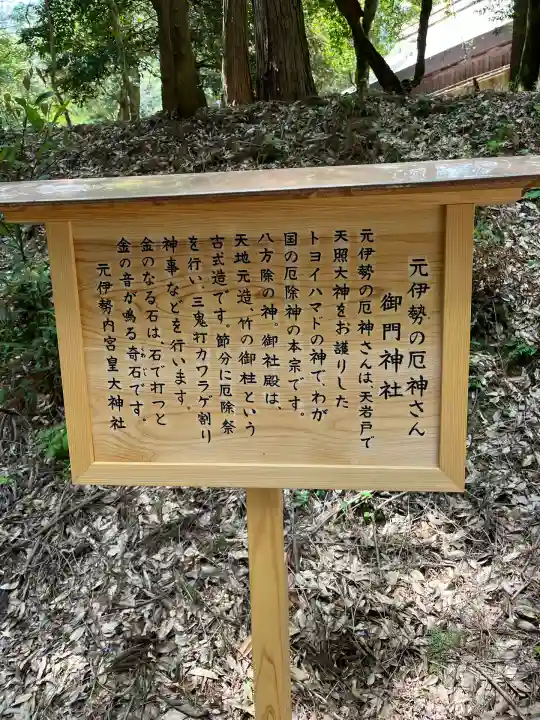 元伊勢の厄神さん
御門神社
元伊勢の厄神さんは天岩戸で
天照大神をお護りした
トヨイハマドの神で、わが
国の厄除神の本宗です。
八方除の神。御社殿は、
天地元造、竹の御柱という
古式造です。節分に厄除祭
を行い、三鬼打カワラゲ割り
神事などを行います。
金のなる石は、石で打つと
金の音が鳴る奇石です。
元伊勢内宮皇大神社